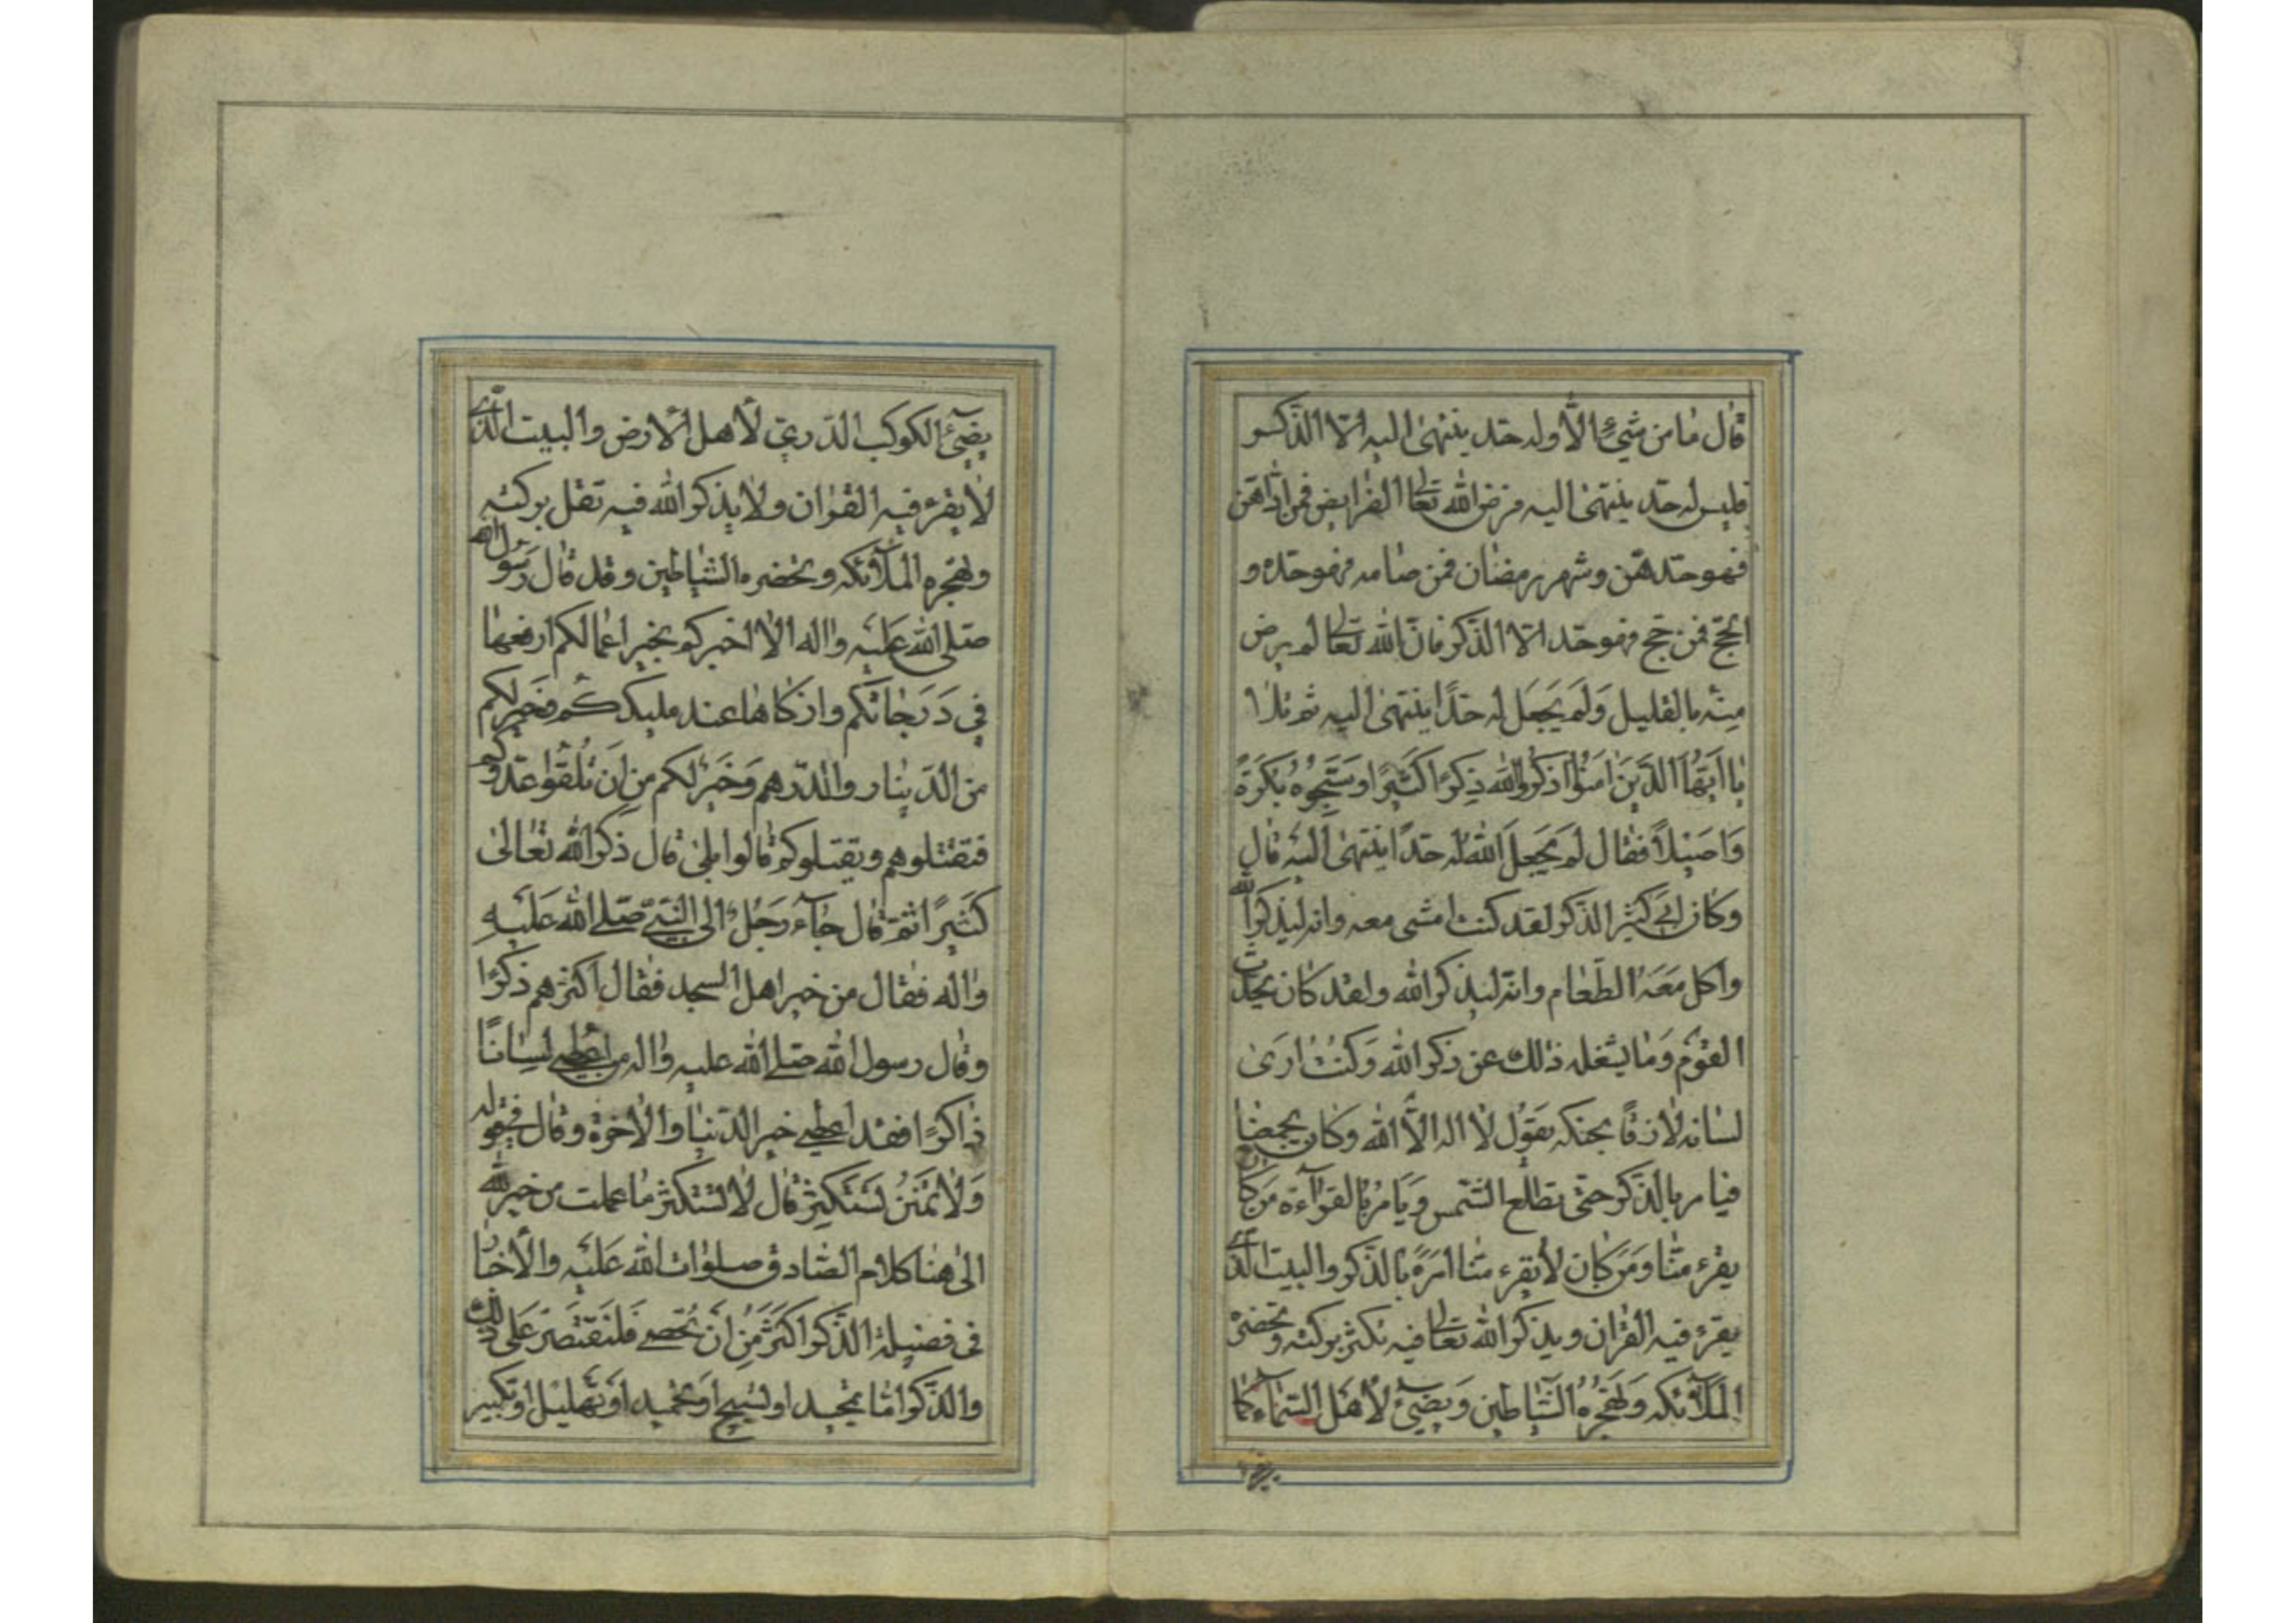 قال ما من شيء الا وله حد ينتهى اليه الا الذكر
فليس له حد ينتهى اليه فرض الله تعالى الفرايض فمن اداهن
فهو حدهن و شهر رمضان فمن صامه فهو حده و
الحج فمن حج فهو حده الا الذكر فان الله تعالى لم يرض
مِنْه بالقليل وَلَم يَجعَل له حدًا ينتهى اليه ثم تلا
يا ايّهَا الذَّينَ اٰمَنُوا اذكروا الله ذِكرًا كثيرًا و سَبّحُوهُ بُكرَةً
وَاَصيلاً فقال لَم يَجعل الله له حدًا ينتهى اليه قال
وكان ابي كثير الذكر لقد كنت امشى معه وانه ليذكر الله
واكل مَعَهُ الطّعام وانّه ليذكر الله ولقد كان يحدّث
القوم وَمايشغله ذلك عن ذكر الله وَكنتُ ارىٰ
لسانه لازقًا بحنكه يقول لا اله الاّ الله وكان يجمعنا
فيامر بالذّكر حتى تطلع الشّمس وَيَامرُ بالقرآءة مَن كان
يقرء منّا وَمَن كان لا يقرء منا امَرَهُ بالذّكر والبيت الّذى
يقرء فيه القران ويذكر الله تعالى فيه تكثر بركته و تحضره
الملآئكه وَتهجُرهُ الشّياطين وَيضيءُ لأهل السّمآء كما
يضئ
يضيءُ الكوكب الدّريّ لأهل الارض والبيت الّذى
لا يقرء فيه القران ولا يذكر الله فيه تقل بركته
وتهجره الملآئكه وتحضره الشياطين وقد قال رَسُول الله
صلى الله عليه واله الا اخبركم بخير اعمالكم ارفعها
في دَرَجاتكم وازكاها عند مليككم وَخير لكم
من الدّينار والدّرهم وَخَير لكم من ان تُلقوا عَدوّكم
فتقتلوهم ويقتلوكم قالوا بلى قال ذكر الله تعالىٰ
كثيرًا ثم قال جآء رَجُلٌ الى النّبيّ صلى الله عَليهِ
واله فقال من خير اهل المسجد فقال اكثرهم ذكرًا
وقال رسول الله صلى الله عليه واله من اعطى لسانًا
ذاكرًا فقد اعطى خير الدّنيا والاٰخرة وقال في قوله
وَلا تمنن تستكثر قال لا تستكثر ما عملت من خير لله
الى هنا كلام الصّادق صلوات الله عَليه والأخبار
فى فضيلة الذّكر اكثر مِن اَن تُحصى فلنقتَصر على ذلك
والذّكر امّا تمجيد او تسبيح او تحميد او تهليل او تكبير